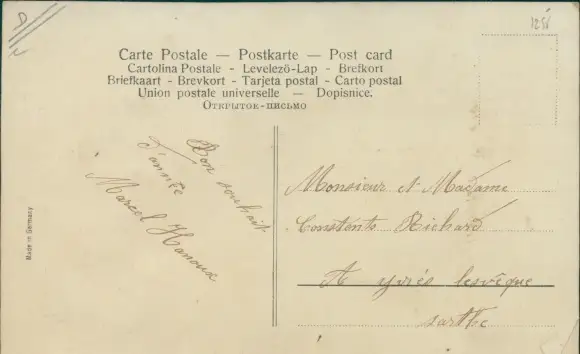 1256
Carte Postale — Postkarte — Post card
Cartolina Postale - Levelező-Lap - Brefkort
Briefkaart - Brevkort - Tarjeta postal - Carto postal
Union postale universelle — Dopisnice.
Открытое-письмо
Bon souhait
d'année
Marcel Hanoux
Made in Germany
Monsieur et Madame
Constants Richard
A yvrés lesvêque
sarthe